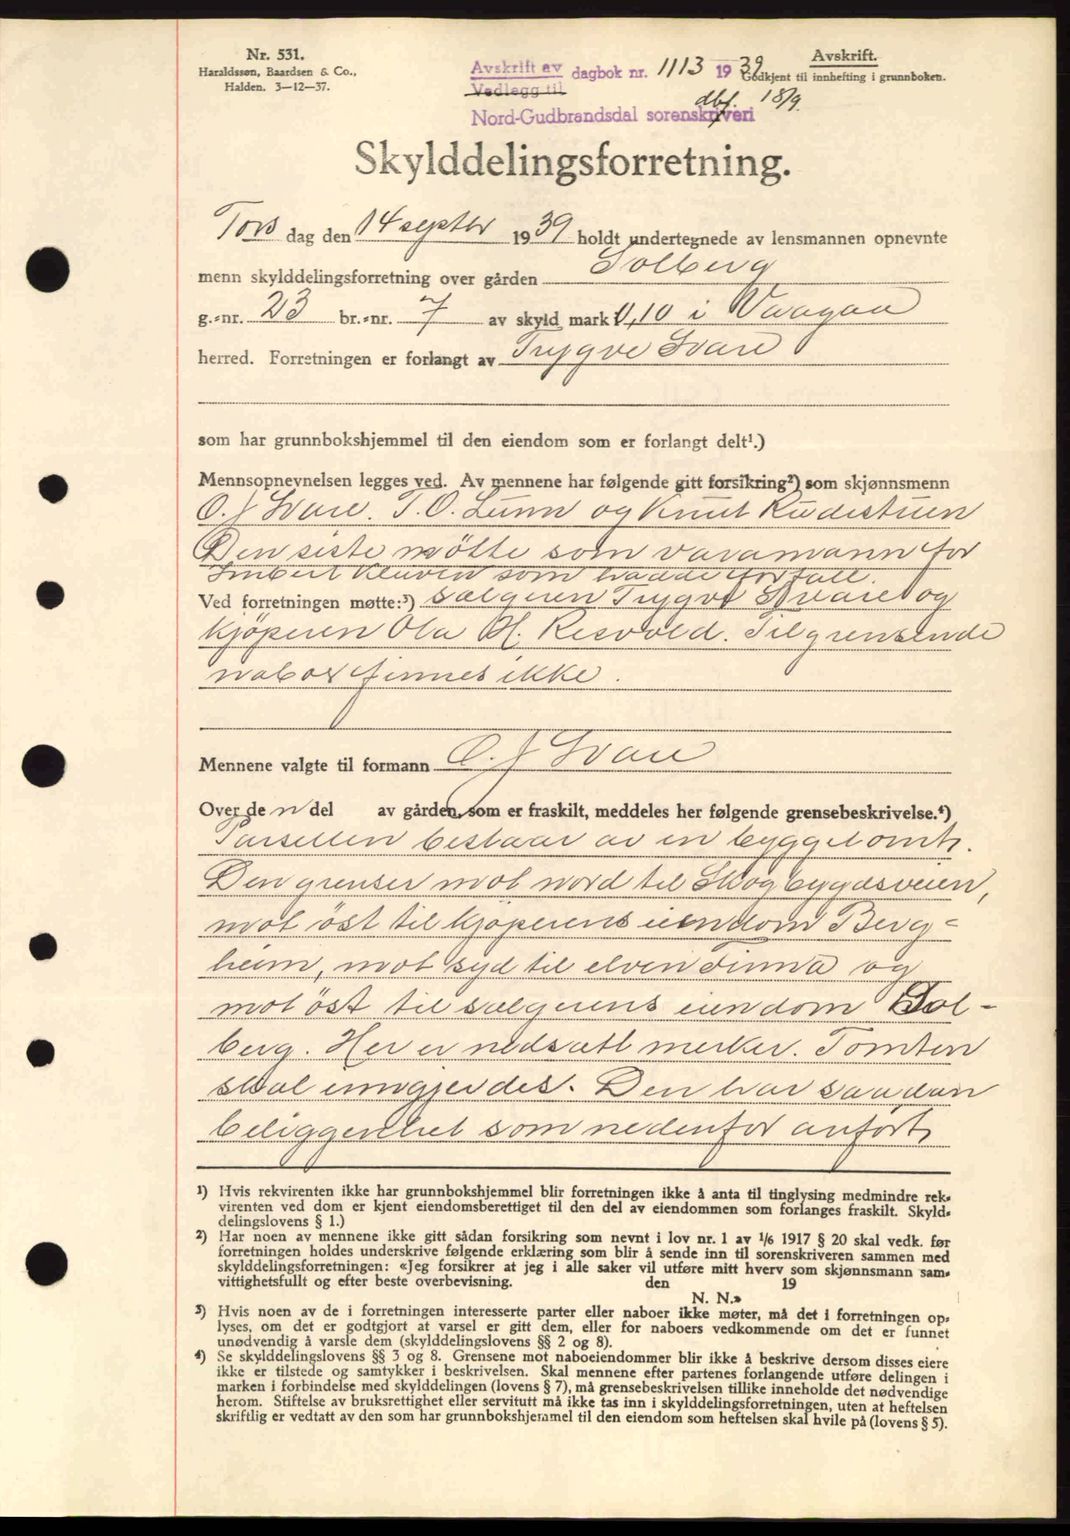 Nr. 531.
Haraldssøn, Baardsen & Co.,
Halden. 3—12—37.
Avskrift.
Godkjent til innhefting i grunnboken.
Avskrift av
Vedlegg til
dagbok nr. 1113 1939
dbf. 18/9
Nord-Gudbrandsdal sorenskriveri
Skylddelingsforretning.
Tors dag den 14 septbr 1939 holdt undertegnede av lensmannen opnevnte
menn skylddelingsforretning over gården Solberg
g.-nr. 23 br.-nr. 7 av skyld mark 0,10 i Vaagaa
herred. Forretningen er forlangt av Trygve Svare
som har grunnbokshjemmel til den eiendom som er forlangt delt¹.)
Mennsopnevnelsen legges ved. Av mennene har følgende gitt forsikring²) som skjønnsmenn
O. J Svare. T. O. Lunn og Knut Rudistuen
Den siste møtte som varamann for
Kleiven som hadde forfall.
Ved forretningen møtte:³) sælgeren Trygve Svare og
kjöperen Ola H. Resvold. Tilgrensende
naboer finnes ikke.
Mennene valgte til formann O. J Svare
Over de n del av gården, som er fraskilt, meddeles her følgende grensebeskrivelse.⁴)
Parsellen bestaar av en byggetomt.
Den grenser mot nord til Skogbygdsveien,
mot öst til kjöperens eiendom Berg-
heim, mot syd til elven Finna og
mot öst til sælgerens eiendom Sol-
berg. Her er nedsatt merker. Tomten
skal inngjerdes. Den har saadan
beliggenhet som nedenfor anfört,
¹) Hvis rekvirenten ikke har grunnbokshjemmel blir forretningen ikke å anta til tinglysing medmindre rek-
virenten ved dom er kjent eiendomsberettiget til den del av eiendommen som forlanges fraskilt. Skyld-
delingslovens § 1.)
²) Har noen av mennene ikke gitt sådan forsikring som nevnt i lov nr. 1 av 1/6 1917 § 20 skal vedk. før
forretningen holdes underskrive følgende erklæring som blir å sende inn til sorenskriveren sammen med
skylddelingsforretningen: «Jeg forsikrer at jeg i alle saker vil utføre mitt hverv som skjønnsmann sam-
vittighetsfullt og efter beste overbevisning. den 19
N. N.»
³) Hvis noen av de i forretningen interesserte parter eller naboer ikke møter, må det i forretningen op-
lyses, om det er godtgjort at varsel er gitt dem, eller for naboers vedkommende om det er funnet
unødvendig å varsle dem (skylddelingslovens §§ 2 og 8).
⁴) Se skylddelingslovens §§ 3 og 8. Grensene mot naboeiendommer blir ikke å beskrive dersom disses eiere
ikke er tilstede og samtykker i beskrivelsen. Skal mennene efter partenes forlangende utføre delingen i
marken i forbindelse med skylddelingen (lovens § 7), må grensebeskrivelsen tillike inneholde det nødvendige
herom. Stiftelse av bruksrettighet eller servitutt må ikke tas inn i skylddelingsforretningen, uten at heftelsen
skriftlig er vedtatt av den som har grunnbokshjemmel til den eiendom som heftelsen skal hvile på (lovens § 5).